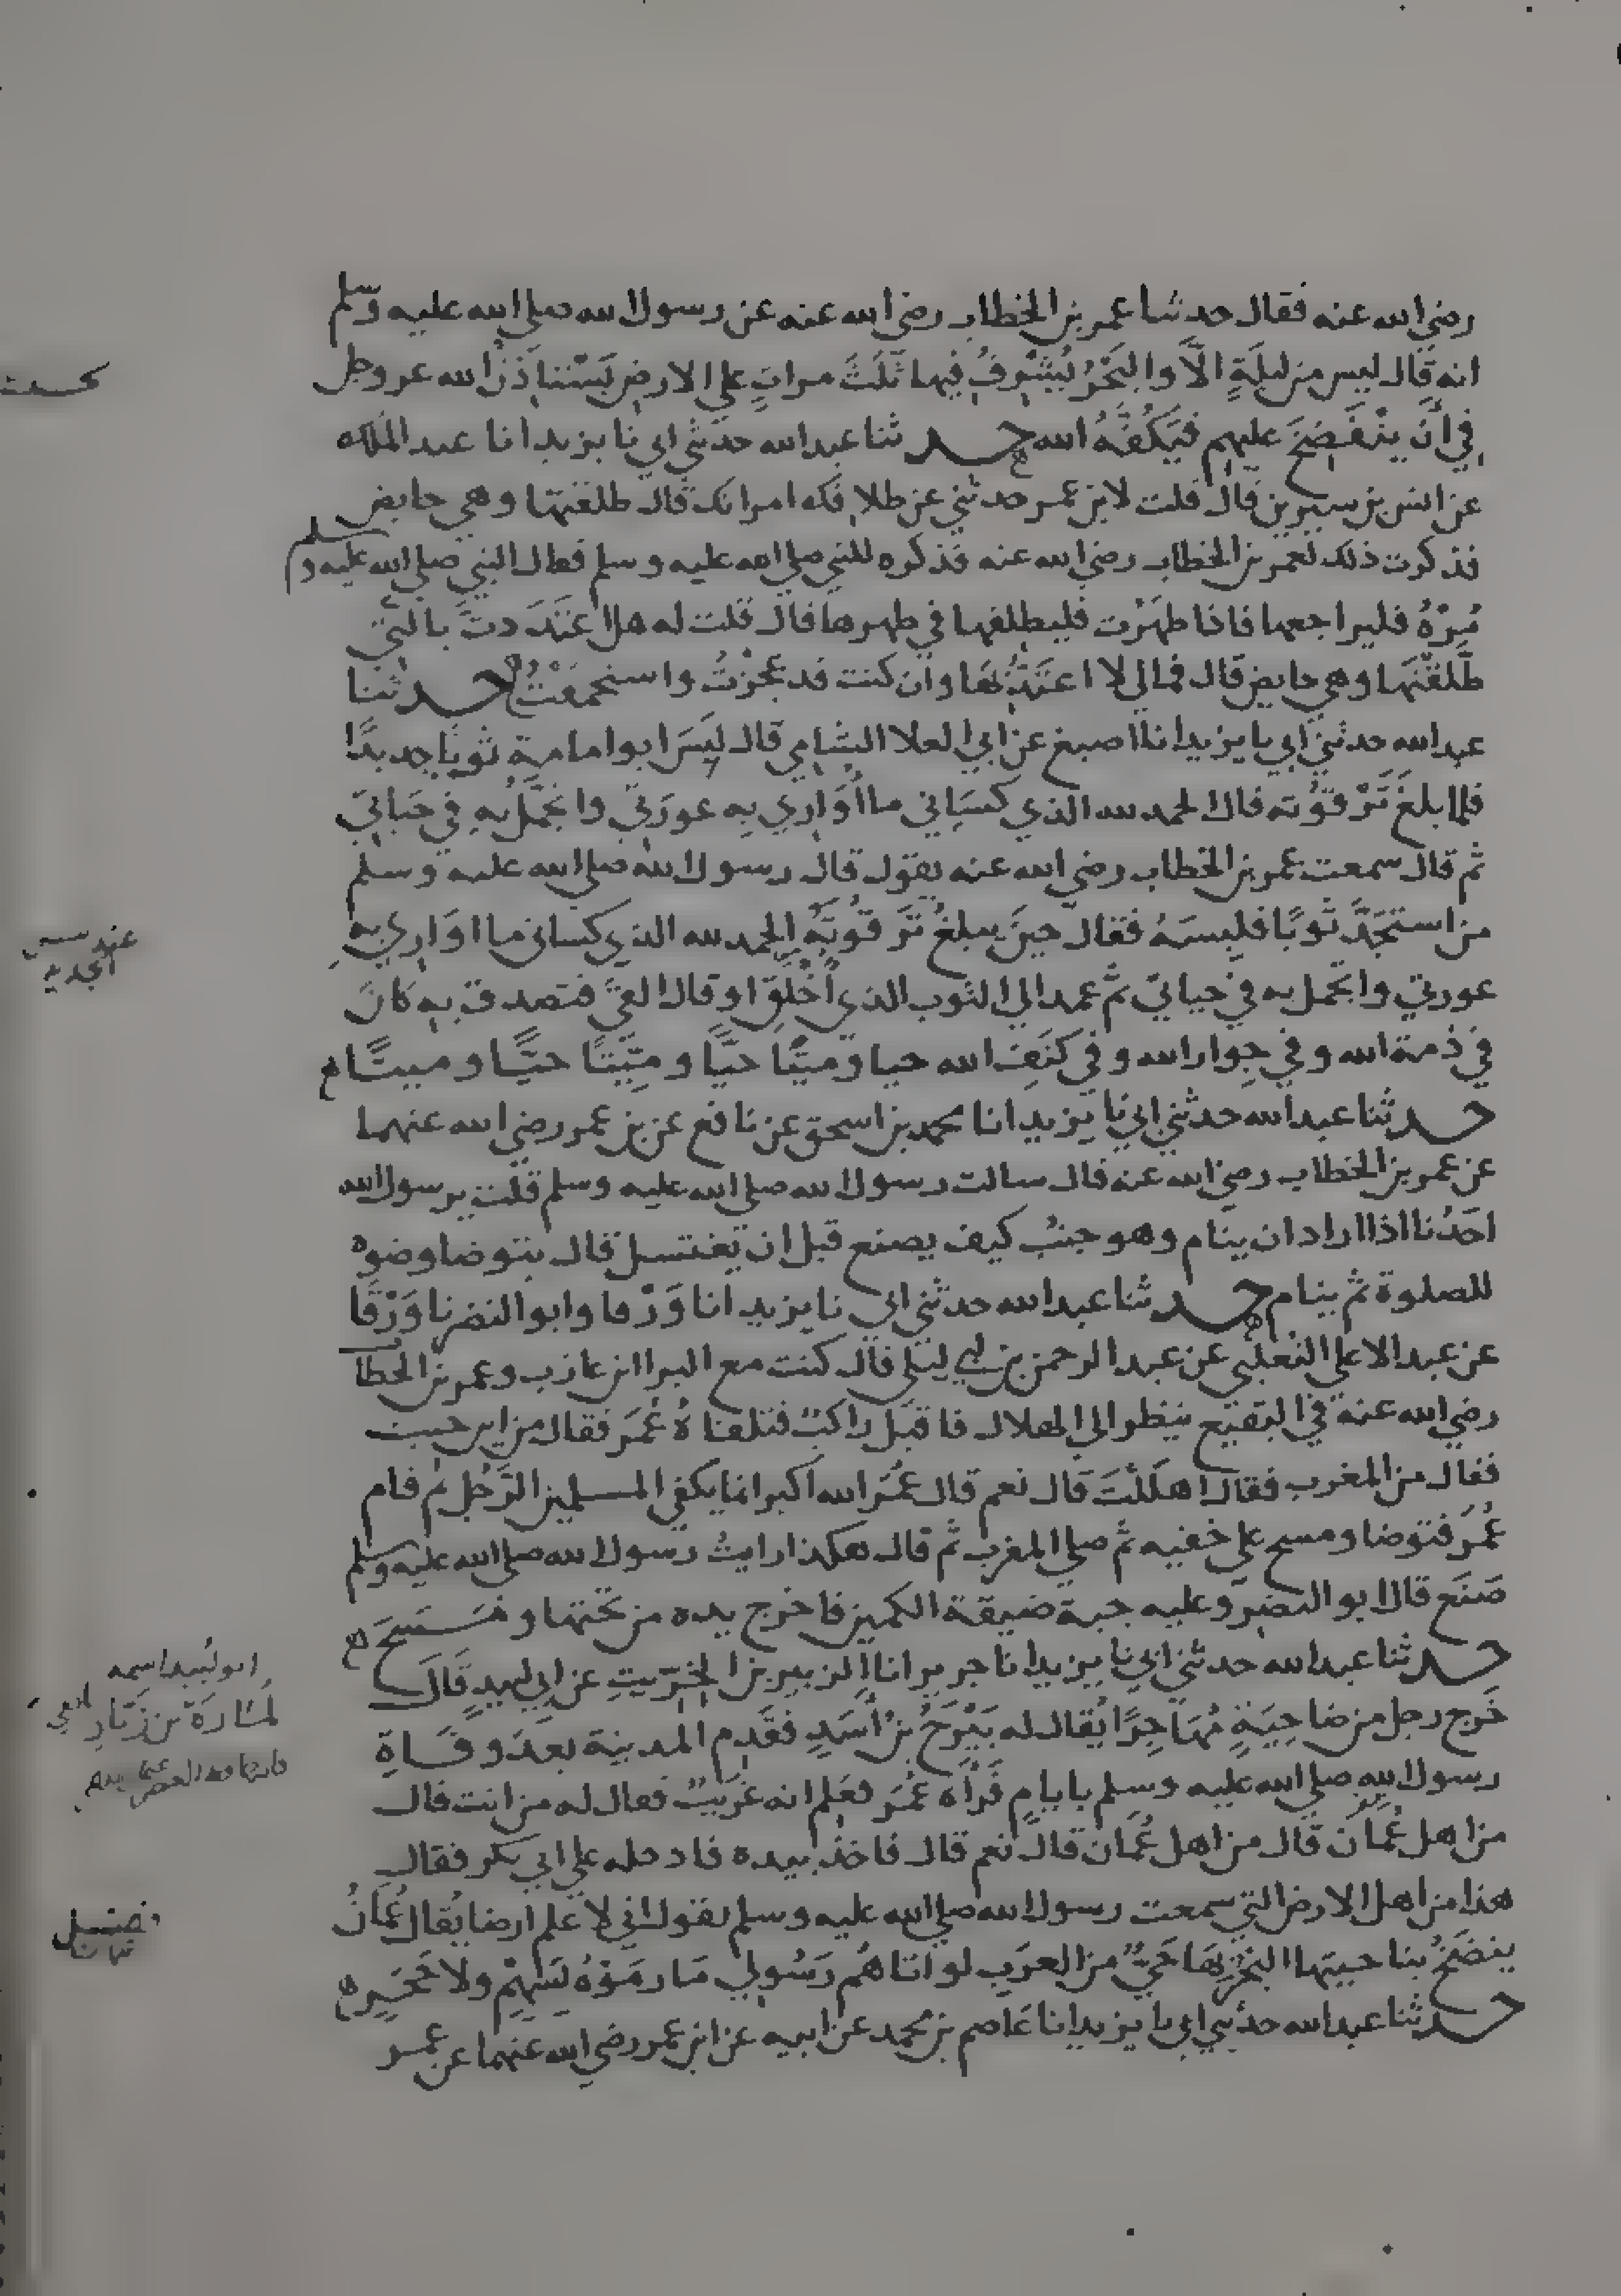 رضي الله عنه فقال حدثنا عمر بن الخطاب رضي الله عنه عن رسول الله صلى الله عليه وسلم
انه قال ليس من ليلة الا والبحر يشرف فيها ثلث مرات على الارض يستاذن الله عز وجل
في ان ينفضخ عليهم فيكفه الله حدثنا عبد الله حدثني ابي نا يزيد انا عبد الملك
عن انس بن سيرين قال قلت لابن عمر حدثني عن طلاقك امراتك قال طلقتها وهي حايض
فذكرت ذلك لعمر بن الخطاب رضي الله عنه فذكره للنبي صلى الله عليه وسلم فقال النبي صلى الله عليه وسلم
مره فليراجعها فاذا طهرت فليطلقها في طهرها قال قلت له هل اعتددت بالتي
طلقتها وهي حايض قال فمالي لا اعتد بها وان كنت قد عجزت واستحمقت حدثنا
عبد الله حدثني ابي نا يزيد انا اصبغ عن ابي العلا الشامي قال لبس ابو امامة ثوبا جديدا
فلما بلغ ترقوته قال الحمد لله الذي كساني ما اواري به عورتي واتجمل به في حياتي
ثم قال سمعت عمر بن الخطاب رضي الله عنه يقول قال رسول الله صلى الله عليه وسلم
من استجد ثوبا فلبسه فقال حين يبلغ ترقوته الحمد لله الذي كساني ما اواري به
عورتي واتجمل به في حياتي ثم عمد الى الثوب الذي اخلق او قال القى فتصدق به كان
في ذمة الله وفي جوار الله وفي كنف الله حيا وميتا حيا وميتا حيا وميتا
حدثنا عبد الله حدثني ابي نا يزيد انا محمد بن اسحق عن نافع عن بن عمر رضي الله عنهما
عن عمر بن الخطاب رضي الله عنه قال سالت رسول الله صلى الله عليه وسلم قلت يرسول الله
احدنا اذا اراد ان ينام وهو جنب كيف يصنع قبل ان يغتسل قال يتوضا وضوه
للصلوة ثم ينام حدثنا عبد الله حدثني ابي نا يزيد انا ورقا وابو النضر نا ورقا
عن عبد الاعلى الثعلبي عن عبد الرحمن بن ابي ليلى قال كنت مع البرا ابن عازب وعمر بن الخطا
رضي الله عنه في البقيع ينظر الى الهلال فاقبل راكب فتلقاه عمر فقال من اين جيت
فقال من المغرب فقال اهللت قال نعم قال عمر الله اكبر انما يكفي المسلمين الرجل ثم قام
عمر فتوضا ومسح على خفيه ثم صلى المغرب ثم قال هكذا رايت رسول الله صلى الله عليه وسلم
صنع قال ابو النضر وعليه جبة ضيقة الكمين فاخرج يده من تحتها ومسح
حدثنا عبد الله حدثني ابي نا يزيد انا جرير انا الزبير بن الخريت عن ابي لبيد قال
خرج رجل من ضاحية مهاجرا يقال له بيرح بن اسد فقدم المدينة بعد وفاة
رسول الله صلى الله عليه وسلم بايام فراه عمر فعلم انه غريب فقال له من انت قال
من اهل عمان قال من اهل عمان قال نعم قال فاخذ بيده فادخله على ابي بكر فقال
هذا من اهل الارض التي سمعت رسول الله صلى الله عليه وسلم يقول اني لاعلم ارضا يقال عمان
ينضح بناحيتها البحر بها حي من العرب لو اتاهم رسولي ما رموه بسهم ولا حجر
حدثنا عبد الله حدثني ابي نا يزيد انا عاصم بن محمد عن ابيه عن ابن عمر رضي الله عنهما عن عمر
ابو لبيد اسمه
لمازة بن زبار